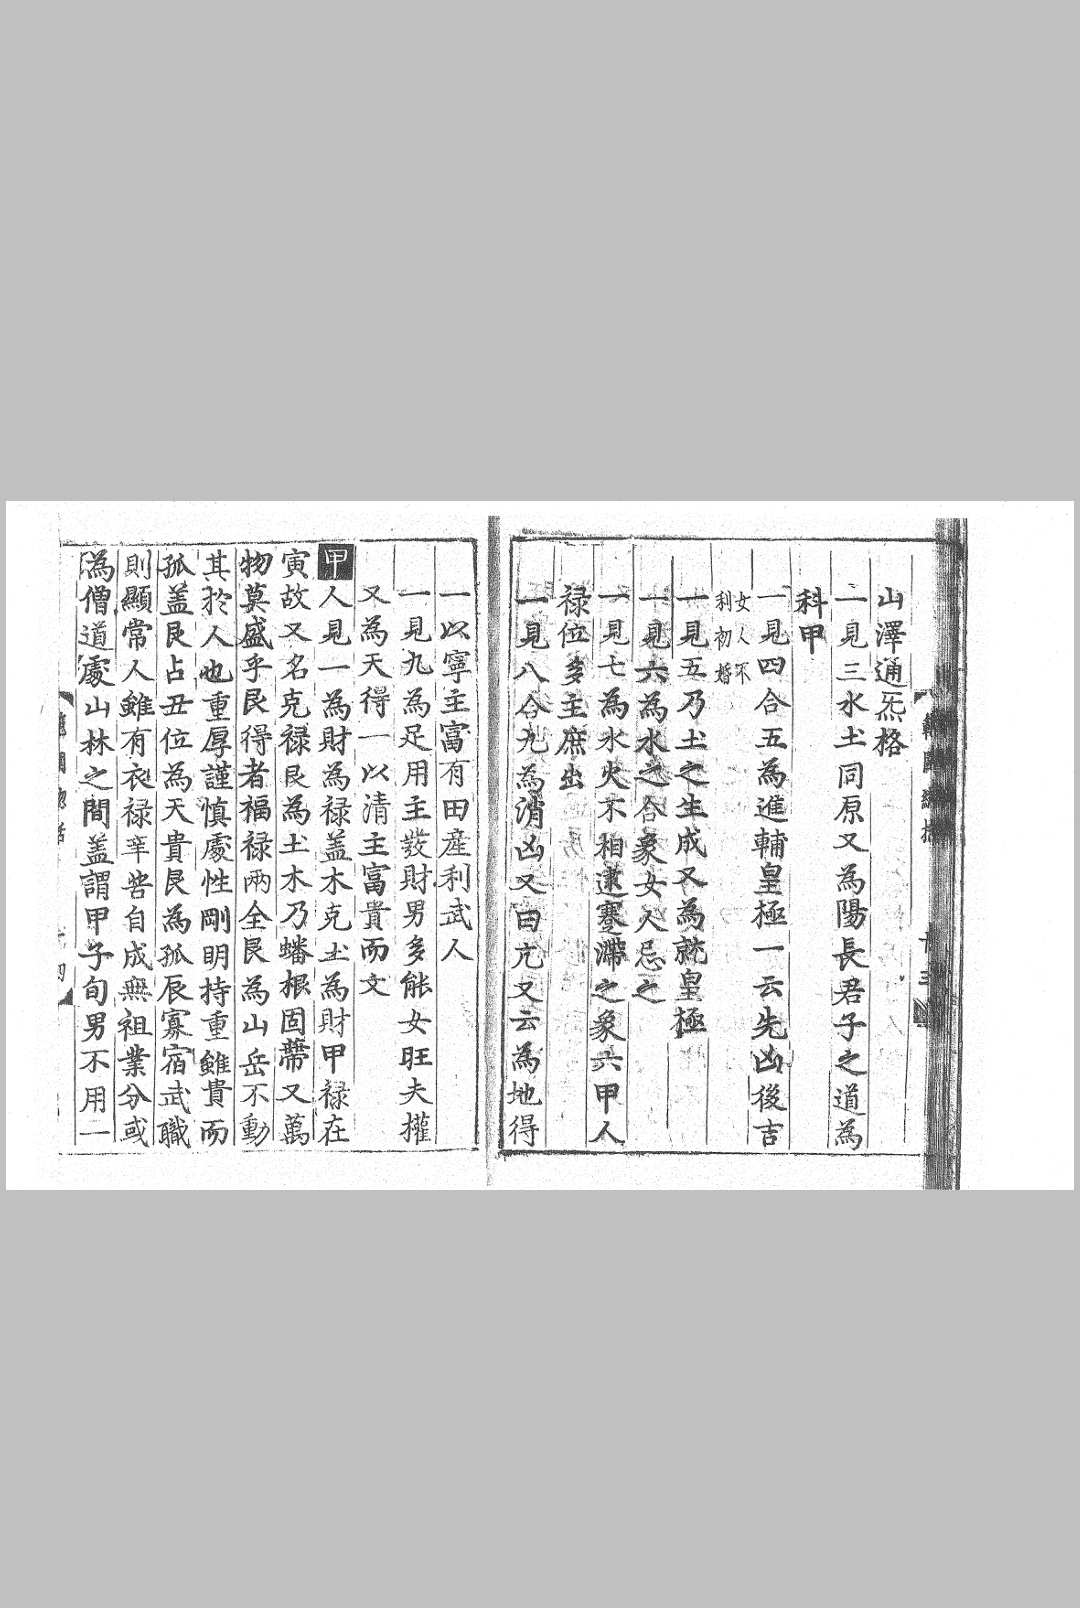 山澤通炁格
二見三水土同原又為陽長君子之道為
科甲
一見四合五為進輔皇極一云先凶後吉
女人不
利初婚
一見五乃土之生成又為就皇極
一見六為水之合象女人忌之
一見七為水火不相逮蹇滯之象六甲人
禄位多主庶出
一見八合九為消凶又曰亢又云為地得
一以寧主富有田産利武人
一見九為足用主發財男多能女旺夫權
又為天得一以清主富貴而文
甲人見一為財為禄盖木克土為財甲禄在
寅故又名克禄艮為土木乃蟠根固蔕又萬
物莫盛乎艮得者福禄兩全艮為山岳不動
其於人也重厚謹慎處性剛明持重雖貴而
孤盖艮占丑位為天貴艮為孤辰寡宿武職
則顯常人雖有衣禄辛苦自成無祖業分或
為僧道處山林之間盖謂甲子旬男不用二